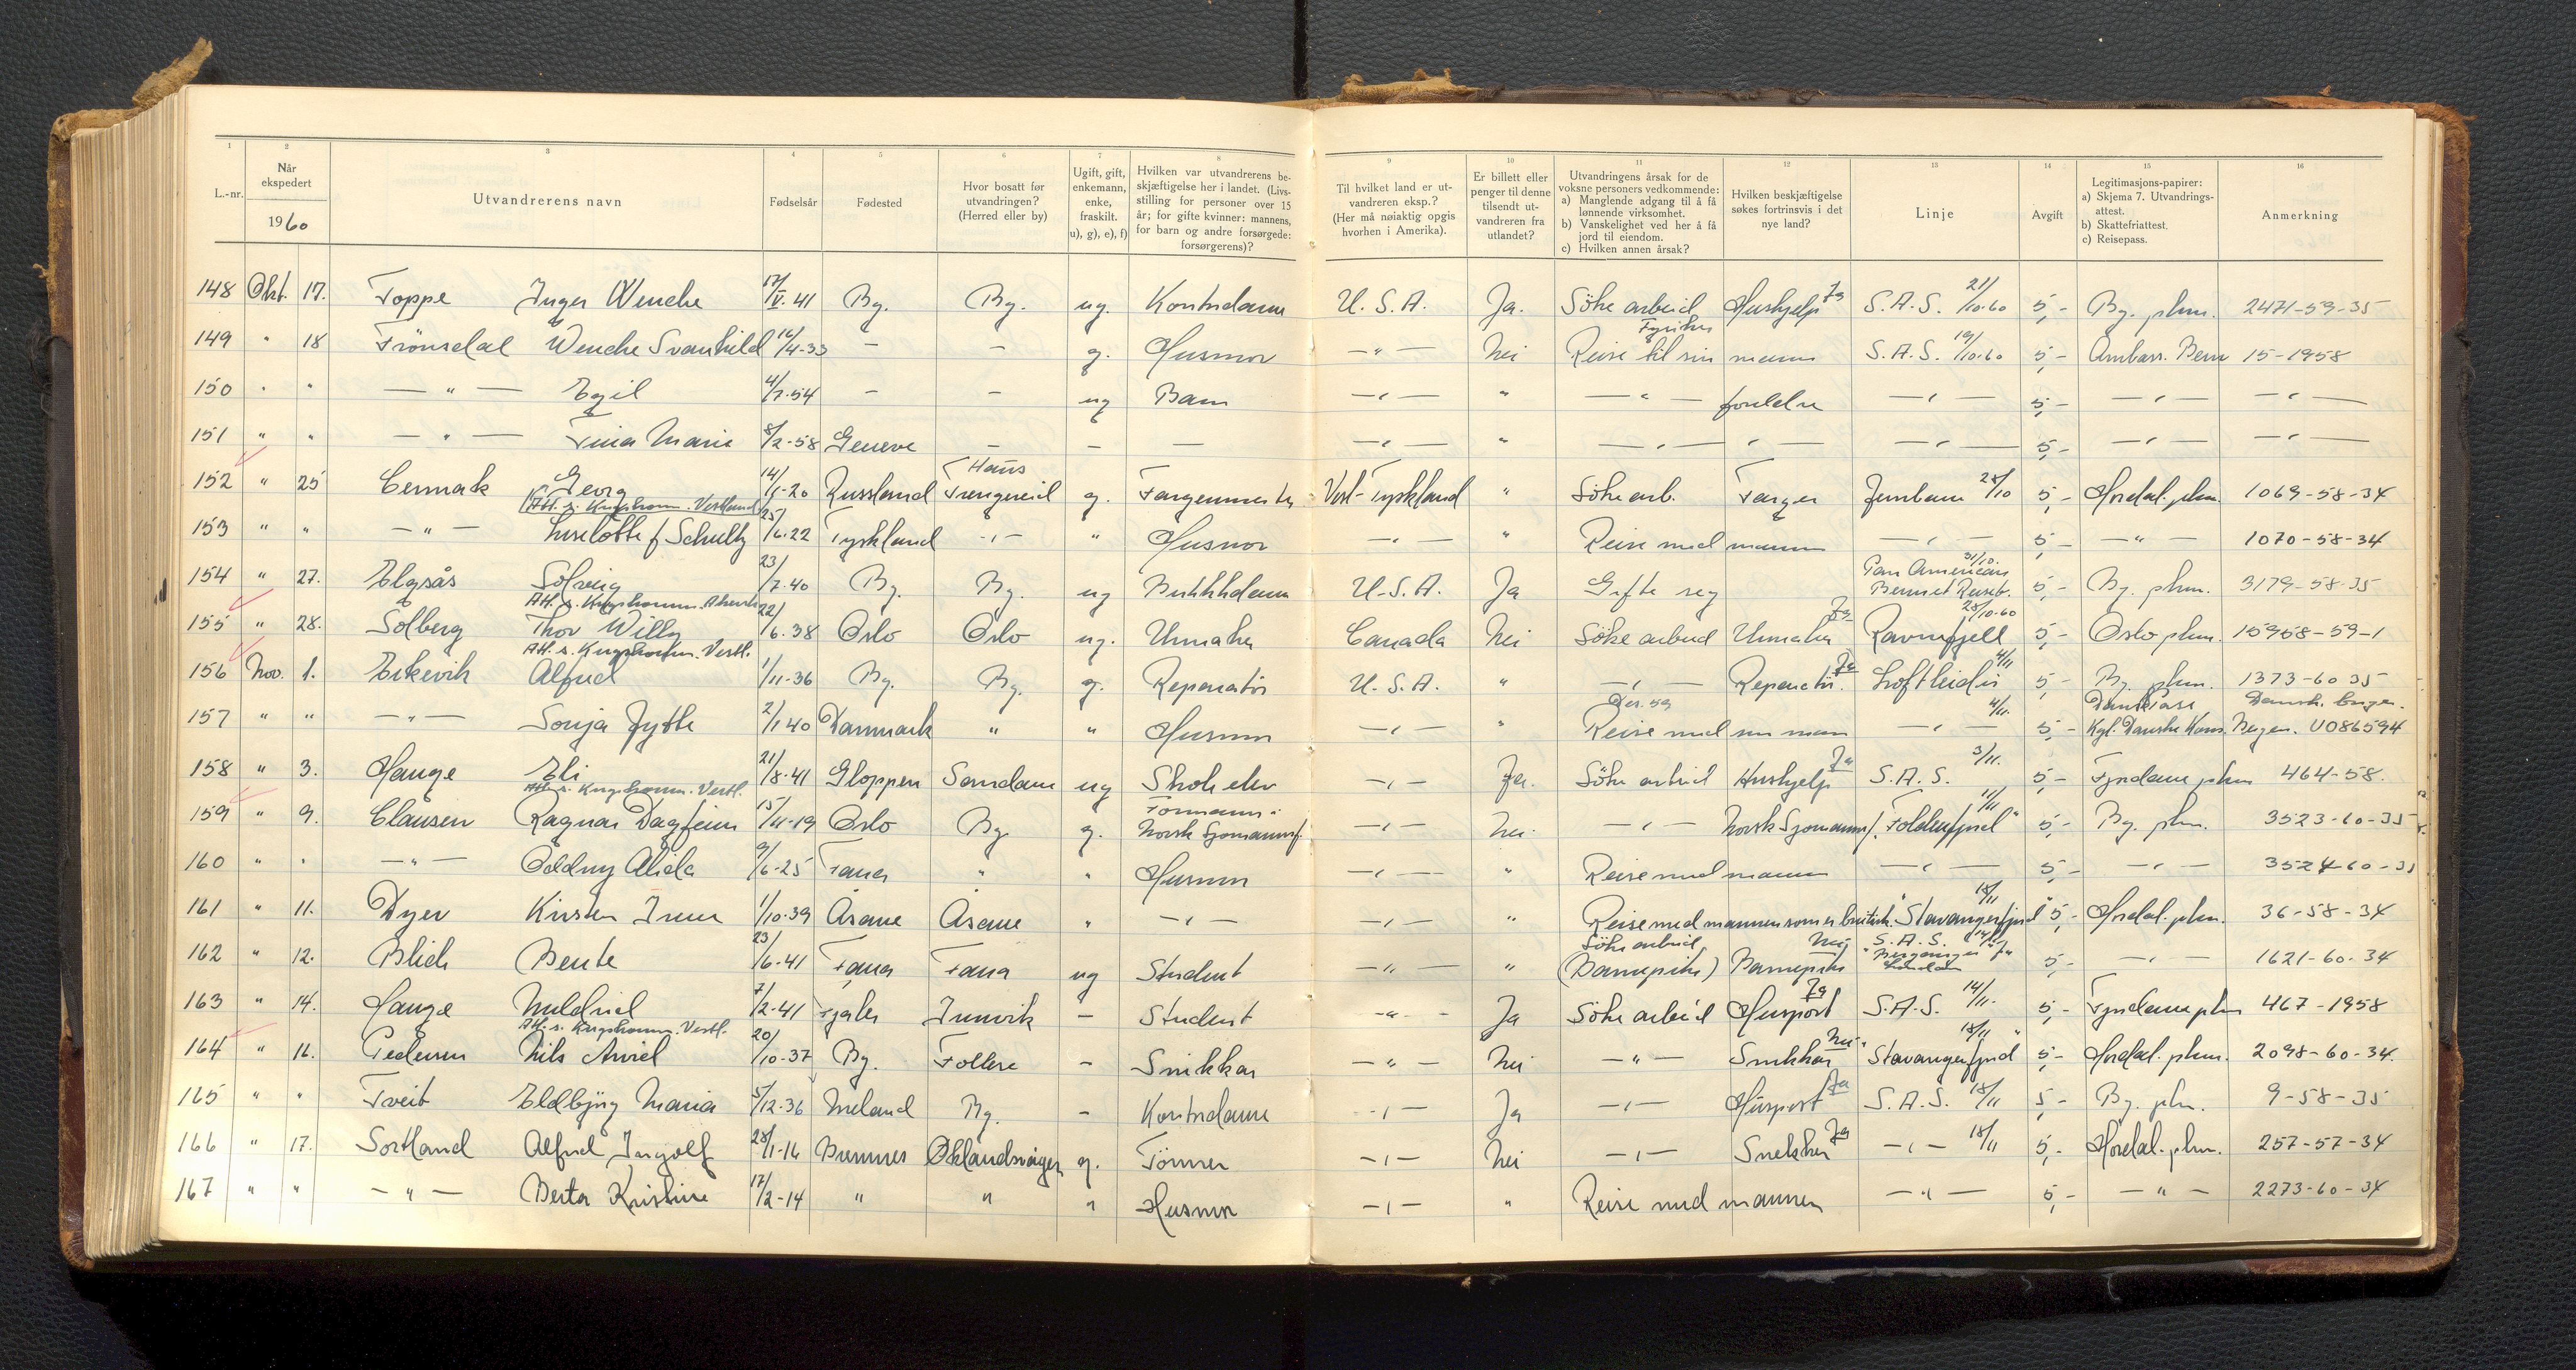 1 2 3 4 5 6 7 8 9 10 11 12 13 14 15 16
L.-nr. Når ekspedert 1960 Utvandrerens navn Fødselsår Fødested Hvor bosatt før utvandringen? (Herred eller by) Ugift, gift, enkemann, enke, fraskilt. u), g), e), f) Hvilken var utvandrerens beskjæftigelse her i landet. (Livsstilling for personer over 15 år; for gifte kvinner: mannens, for barn og andre forsørgede: forsørgerens)? Til hvilket land er utvandreren eksp.? (Her må nøiaktig opgis hvorhen i Amerika). Er billett eller penger til denne tilsendt utvandreren fra utlandet? Utvandringens årsak for de voksne personers vedkommende: a) Manglende adgang til å få lønnende virksomhet. b) Vanskelighet ved her å få jord til eiendom. c) Hvilken annen årsak? Hvilken beskjæftigelse søkes fortrinsvis i det nye land? Linje Avgift Legitimasjons-papirer: a) Skjema 7. Utvandringsattest. b) Skattefriattest. c) Reisepass. Anmerkning
148 Okt. 17. Toppe Inger Wenche 17/V. 41 By. By. ug. Kontordame U.S.A. Ja. Söke arbeid Hushjelp Ja S.A.S. 21/10-60 5,- By. pkm. 2471-59-35
149 " 18 Trönsdal Wenche Svanhild 16/4-33 - - g. Husmor -"- Nei Reise til sin Fysiker mann S.A.S. 19/10-60 5,- Ambass. Bern 15-1958
150 " " -"- Egil 4/7-54 - - ug Barn -"- " -"- foreldre -"- 5,- -"- -"-
151 " " -"- Tina Marie 8/2-58 Geneve - - - -"- " -"- " -"- 5,- -"- -"-
152 " 25 Cermak Georg 14/1-20 Russland Trengereid Haus g. Fargemester Vest-Tyskland " Söke arb. Farger Jernbane 28/10 5,- Hordal. pkm. 1069-58-34
(Att. s. Kryssh Vestland)
153 " " -"- Liselotte f Schultz 25/6.22 Tyskland -"- " Husmor -"- " Reise med mannen -"- 5,- -"- 1070-58-34
154 " 27. Elgsås Solveig 23/7-40 By. By. ug Butikkdame U.S.A. Ja Gifte seg Pan American 31/10. Bennet Reiseb. 5,- By. pkm. 3179-58-35
155 " 28. Solberg Thor Willy 22/6.38 Oslo Oslo ug. Urmaker Canada Nei Söke arbeid Urmaker Ja Ravnefjell 28/10-60 5,- Oslo pkm. 15958-59-1
156 Nov. 1. Eikevik Alfred 1/11-36 By. By. g. Reparatör U.S.A. " -"- Reparatör Ja Loftleidir 4/11 5,- By. pkm. 1373-60 35
157 " " -"- Sonja Jytte 2/1 40 Danmark " " Husmor -"- " Des. 59 Reise med sin mann -"- 4/11. 5,- Kgl. Danske Kons. Bergen. U086594
158 " 3. Hauge Eli 21/8-41 Gloppen Sandane ug Skole elev -"- Ja. Söke arbeid Hushjelp Ja S.A.S. 3/11. 5,- Fjordane pkm 464-58.
159 " 9. Clausen Ragnar Dagfinn 15/11-19 Oslo By g. Formann i Norsk Sjømannsf. -"- Nei -"- Norsk Sjømannsf. "Foldenfjord" 11/11 5,- By. pkm. 3523-60-35
160 " " -"- Oddny Alida 9/6-25 Fana " " Husmor -"- " Reise med mannen -"- 5,- -"- 3524-60-35
161 " 11. Dyer Kirsten Irene 1/10.39 Åsane Åsane " -"- -"- " Reise med mannen som er britisk. "Stavangerfjord" 18/11 5,- Hordal. pkm. 36-58-34
162 " 12. Blich Bente 23/6-41 Fana Fana ug Student -"- " Söke arbeid (Barnepike) Barnepike Nei S.A.S. 5,- -"- 1621-60-34
163 " 14. Hauge Mildrid 7/2-41 Fjaler Innvik - Student -"- Ja Söke arbeid Huspost Ja S.A.S. 14/11. 5,- Fjordane pkm 467-1958
164 " 16. Pedersen Nils Arvid 20/10-37 By. Follese - Snikkar -"- Nei -"- Snikkar Nei "Stavangerfjord" 18/11 5,- Hordal. pkm. 2098-60-34.
165 " " Tveit Eldbjørg Maria 5/12-36 Meland By. - Kontordame -"- Ja -"- Huspost Ja S.A.S. 18/11 5,- By. pkm. 9-58-35
166 " 17. Sortland Alfred Ingolf 28/1-16 Bremnes Øklandsvågen g. Tömrer -"- Nei -"- Snekker Ja -"- 18/11 5,- Hordal. pkm. 257-57-34
167 " " -"- Berta Kristine 17/2-14 " " " Husmor -"- " Reise med mannen -"- 5,- -"- 2273-60-34